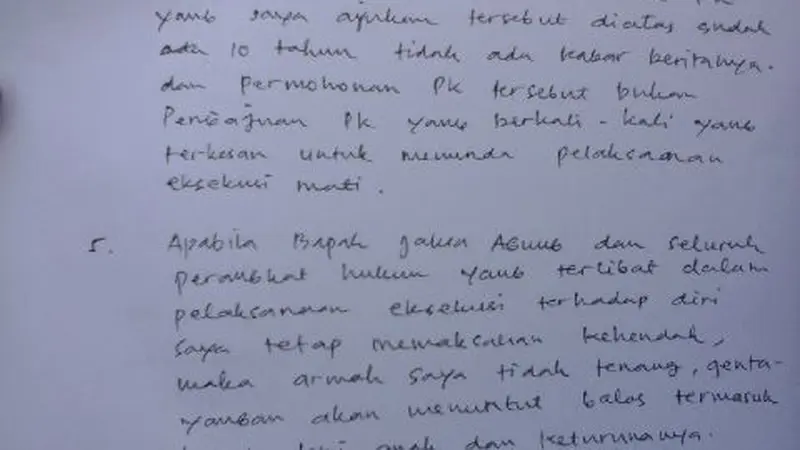 yang saya ajukan tersebut diatas sudah
ada 10 tahun tidak ada kabar beritanya.
dan Permohonan PK tersebut bukan
Pengajuan PK yang berkali-kali yang
terkesan untuk menunda pelaksanaan
eksekusi mati.
5. Apabila Bapak Jaksa Agung dan seluruh
perangkat hukum yang terlibat dalam
pelaksanaan eksekusi terhadap diri
saya tetap memaksakan kehendak,
maka arwah saya tidak tenang, genta-
yangan akan menuntut balas termasuk
anak dan keturunanya.